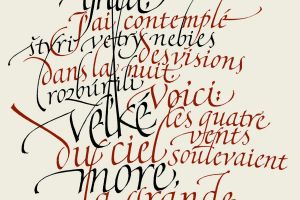 J'ai contemplé
štyri vetry nebies
des visions
dans la nuit
rozbúrili
Voici:
veľké
les quatre
vents
du ciel
soulevaient
more,
la grande